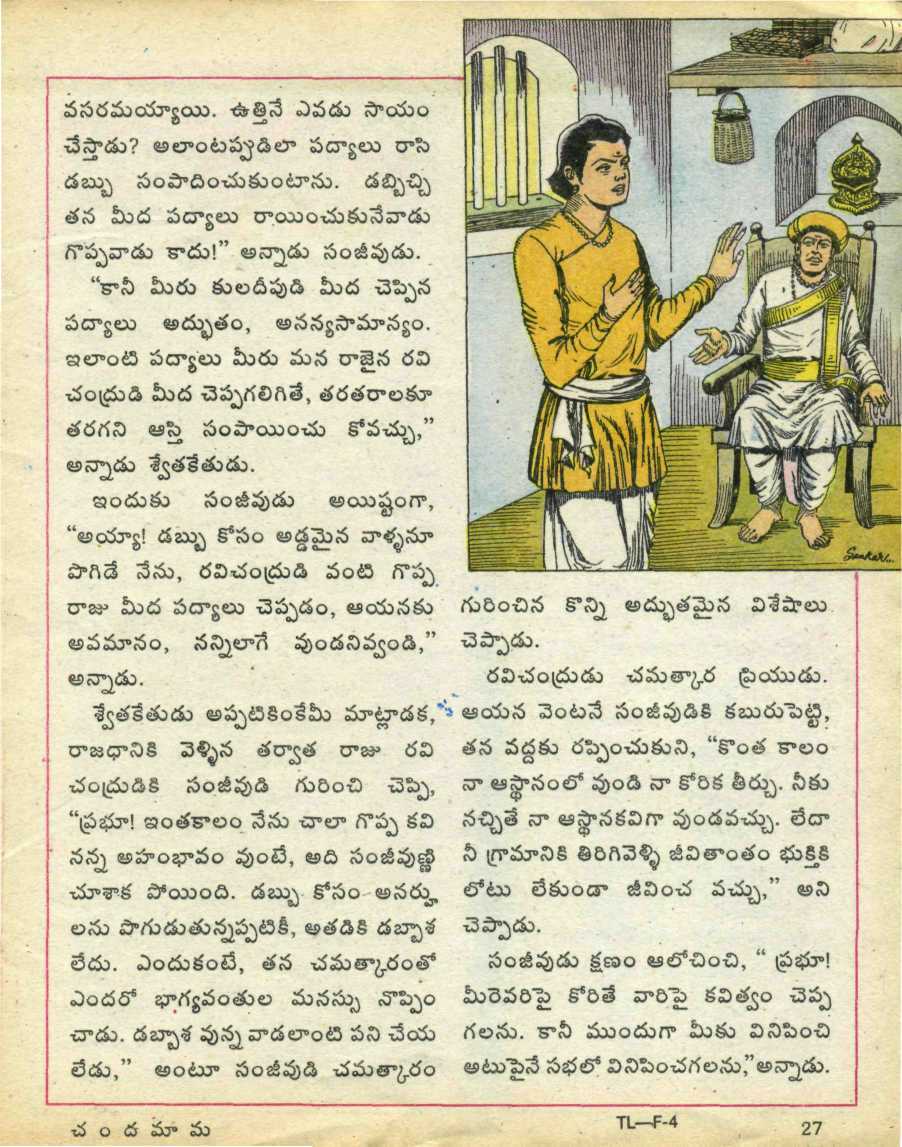 వసరమయ్యాయి. ఉత్తినే ఎవడు సాయం
చేస్తాడు? అలాంటప్పుడిలా పద్యాలు రాసి
డబ్బు సంపాదించుకుంటాను. డబ్బిచ్చి
తన మీద పద్యాలు రాయించుకునేవాడు
గొప్పవాడు కాదు!” అన్నాడు సంజీవుడు.
“కానీ మీరు కులదీపుడి మీద చెప్పిన
పద్యాలు అద్భుతం, అనన్యసామాన్యం.
ఇలాంటి పద్యాలు మీరు మన రాజైన రవి
చంద్రుడి మీద చెప్పగలిగితే, తరతరాలకూ
తరగని ఆస్తి సంపాయించు కోవచ్చు,”
అన్నాడు శ్వేతకేతుడు.
ఇందుకు సంజీవుడు అయిష్టంగా,
“అయ్యా! డబ్బు కోసం అడ్డమైన వాళ్ళనూ
పొగిడే నేను, రవిచంద్రుడి వంటి గొప్ప
రాజు మీద పద్యాలు చెప్పడం, ఆయనకు
అవమానం, నన్నిలాగే వుండనివ్వండి,”
అన్నాడు.
శ్వేతకేతుడు అప్పటికింకేమీ మాట్లాడక,
రాజధానికి వెళ్ళిన తర్వాత రాజు రవి
చంద్రుడికి సంజీవుడి గురించి చెప్పి,
“ప్రభూ! ఇంతకాలం నేను చాలా గొప్ప కవి
నన్న అహంభావం వుంటే, అది సంజీవుణ్ణి
చూశాక పోయింది. డబ్బు కోసం అనర్హు
లను పొగుడుతున్నప్పటికీ, అతడికి డబ్బాశ
లేదు. ఎందుకంటే, తన చమత్కారంతో
ఎందరో భాగ్యవంతుల మనస్సు నొప్పిం
చాడు. డబ్బాశ వున్న వాడలాంటి పని చేయ
లేడు,” అంటూ సంజీవుడి చమత్కారం
Sankar...
గురించిన కొన్ని అద్భుతమైన విశేషాలు
చెప్పాడు.
రవిచంద్రుడు చమత్కార ప్రియుడు.
ఆయన వెంటనే సంజీవుడికి కబురుపెట్టి,
తన వద్దకు రప్పించుకుని, “కొంత కాలం
నా ఆస్థానంలో వుండి నా కోరిక తీర్చు. నీకు
నచ్చితే నా ఆస్థానకవిగా వుండవచ్చు. లేదా
నీ గ్రామానికి తిరిగివెళ్ళి జీవితాంతం భుక్తికి
లోటు లేకుండా జీవించ వచ్చు,” అని
చెప్పాడు.
సంజీవుడు క్షణం ఆలోచించి, “ ప్రభూ!
మీరెవరిపై కోరితే వారిపై కవిత్వం చెప్ప
గలను. కానీ ముందుగా మీకు వినిపించి
అటుపైనే సభలో వినిపించగలను,”అన్నాడు.
చందమామ
TL—F-4
27